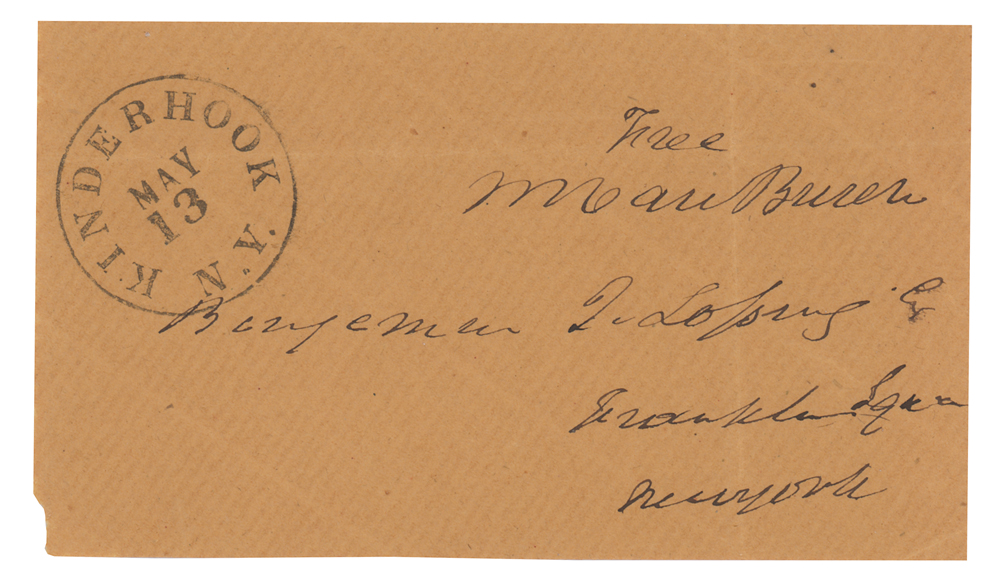 KINDERHOOK N.Y.
MAY
13
Free
MVan Buren
Benjamin J. Lossing Esq
Franklin Square
New york